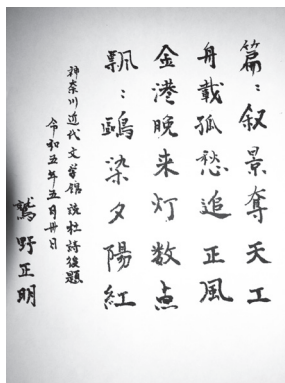 篇〻叙景奪天工
舟載孤愁追正風
金港晩来灯数点
飄〻鷗染夕陽紅
神奈川近代文学館 読杜詩後題
令和五年五月卅日
鷲野正明